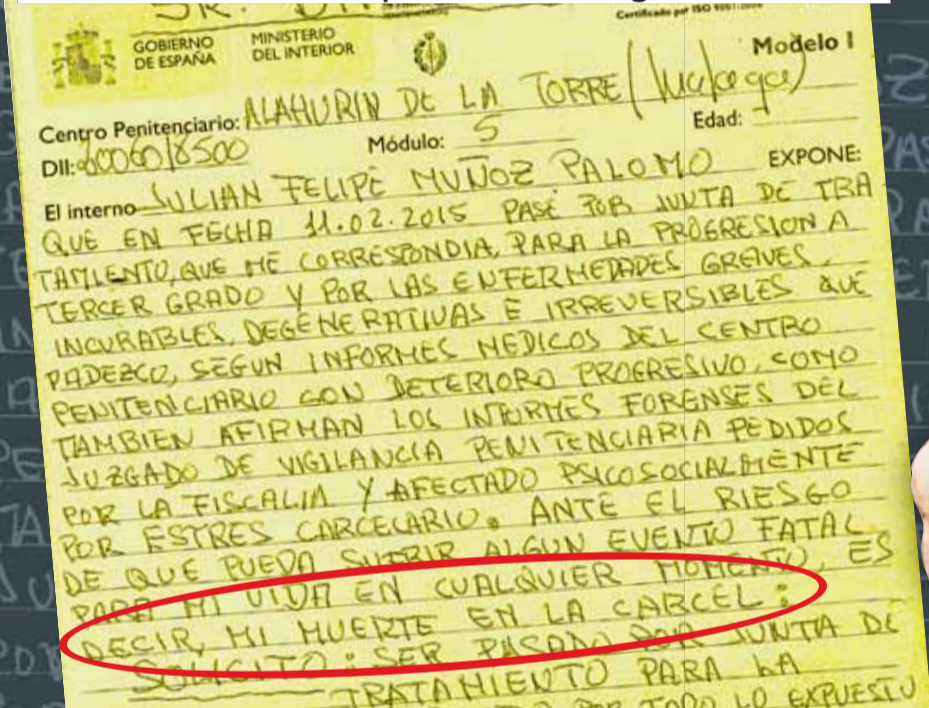 SR.
Certificado por ISO 9001:2008
GOBIERNO DE ESPAÑA
MINISTERIO DEL INTERIOR
Modelo I
Centro Penitenciario: ALAHURIN DE LA TORRE (Malaga)
DII: Módulo: 5 Edad:
El interno JULIAN FELIPE MUÑOZ PALOMO EXPONE:
QUE EN FECHA 11.02.2015 PASE POR JUNTA DE TRA
TAMIENTO, QUE ME CORRESPONDIA, PARA LA PROGRESION A
TERCER GRADO Y POR LAS ENFERMEDADES GREVES,
INCURABLES, DEGENERATIVAS E IRREVERSIBLES QUE
PADEZCO, SEGUN INFORMES MEDICOS DEL CENTRO
PENITENCIARIO CON DETERIORO PROGRESIVO, COMO
TAMBIEN AFIRMAN LOS INFORMES FORENSES DEL
JUZGADO DE VIGILANCIA PENITENCIARIA PEDIDOS
POR LA FISCALIA Y AFECTADO PSICOSOCIALMENTE
POR ESTRES CARCELARIO. ANTE EL RIESGO
DE QUE PUEDA SUFRIR ALGUN EVENTO FATAL
PARA MI VIDA EN CUALQUIER MOMENTO, ES
DECIR, MI MUERTE EN LA CARCEL:
SOLICITO: SER PASADO POR JUNTA DE
TRATAMIENTO PARA LA
POR TODO LO EXPUESTO